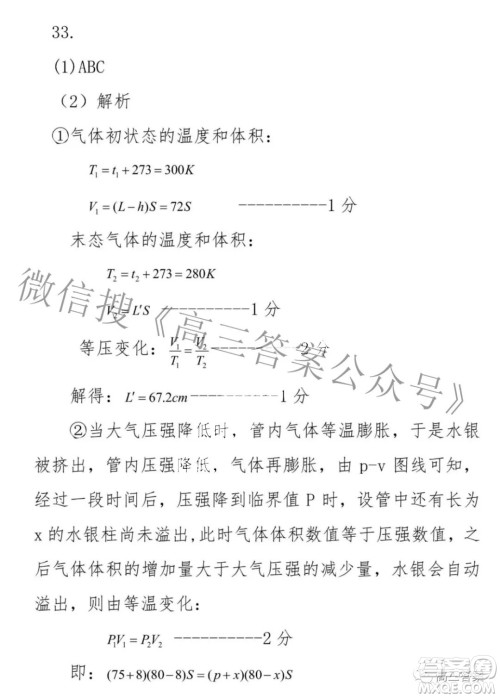 33.
(1)ABC
（2）解析
①气体初状态的温度和体积：
T₁=t₁+273=300K
V₁=(L-h)S=72S ----------1 分
末态气体的温度和体积：
T₂=t₂+273=280K
V₂=L'S ----------1 分
等压变化：V₁/T₁=V₂/T₂ ---------- 2分
解得：L'=67.2cm ----------1 分
②当大气压强降低时，管内气体等温膨胀，于是水银
被挤出，管内压强降低，气体再膨胀，由 p-v 图线可知，
经过一段时间后，压强降到临界值 P 时，设管中还有长为
x 的水银柱尚未溢出,此时气体体积数值等于压强数值，之
后气体体积的增加量大于大气压强的减少量，水银会自动
溢出，则由等温变化：
P₁V₁=P₂V₂ ----------2 分
即：(75+8)(80-8)S=(p+x)(80-x)S
微信搜《高三答案公众号》
高三答案